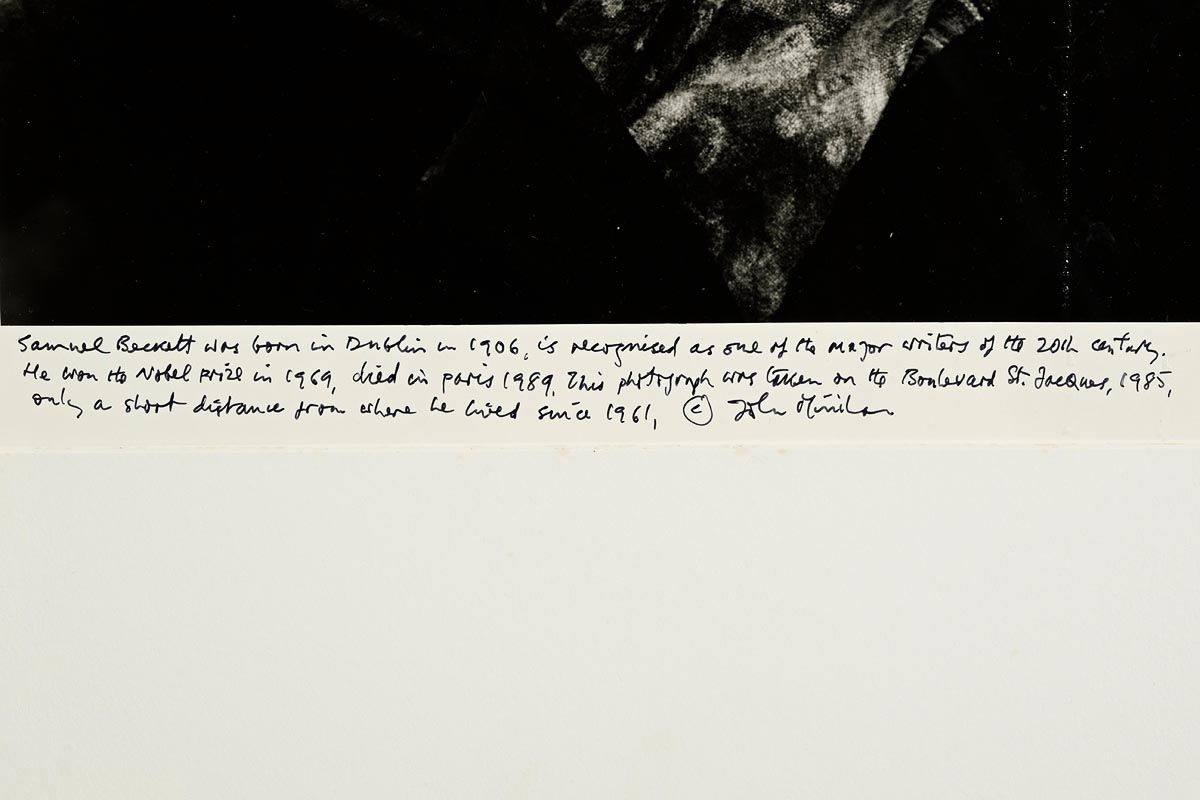 Samuel Beckett was born in Dublin in 1906, is recognised as one of the major writers of the 20th century.
He won the Nobel prize in 1969, died in paris 1989. This photograph was taken on the Boulevard St. Jacques, 1985,
only a short distance from where he lived since 1961, © John Minihan